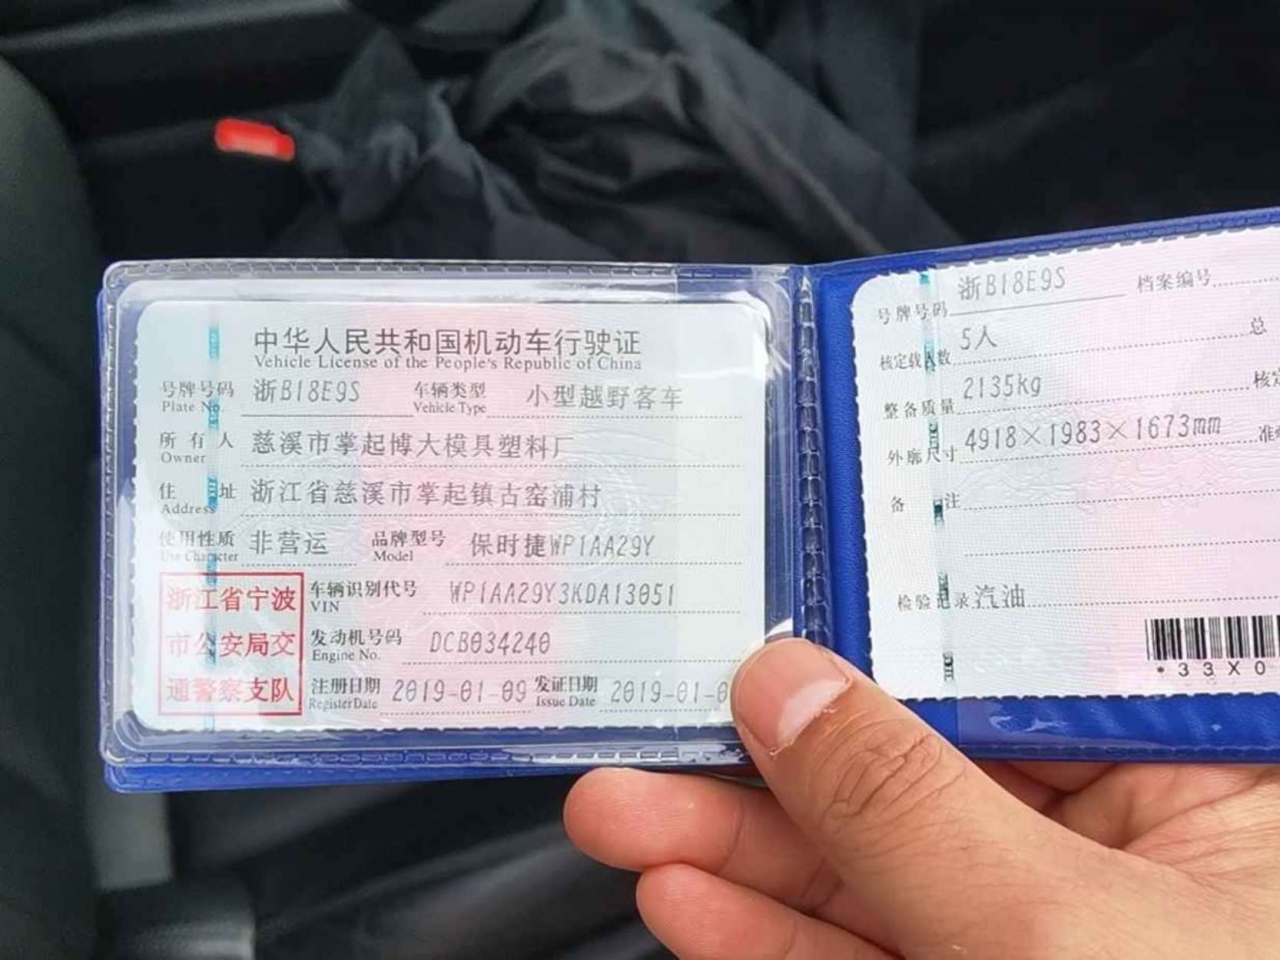 中华人民共和国机动车行驶证
Vehicle License of the People's Republic of China
号牌号码 浙B18E9S 车辆类型 小型越野客车
Plate No. Vehicle Type
所有人 慈溪市掌起博大模具塑料厂
Owner
住址 浙江省慈溪市掌起镇古窑浦村
Address
使用性质 非营运 品牌型号 保时捷WP1AA29Y
Use Character Model
浙江省宁波
市公安局交
通警察支队
车辆识别代号 WP1AA29Y3KDA13051
VIN
发动机号码 DCB034240
Engine No.
注册日期 2019-01-09 发证日期 2019-01-0
Register Date Issue Date
号牌号码 浙B18E9S 档案编号
核定载人数 5人 总
整备质量 2135kg 核定
外廓尺寸 4918×1983×1673mm 准
备注
检验记录 汽油
*33X0